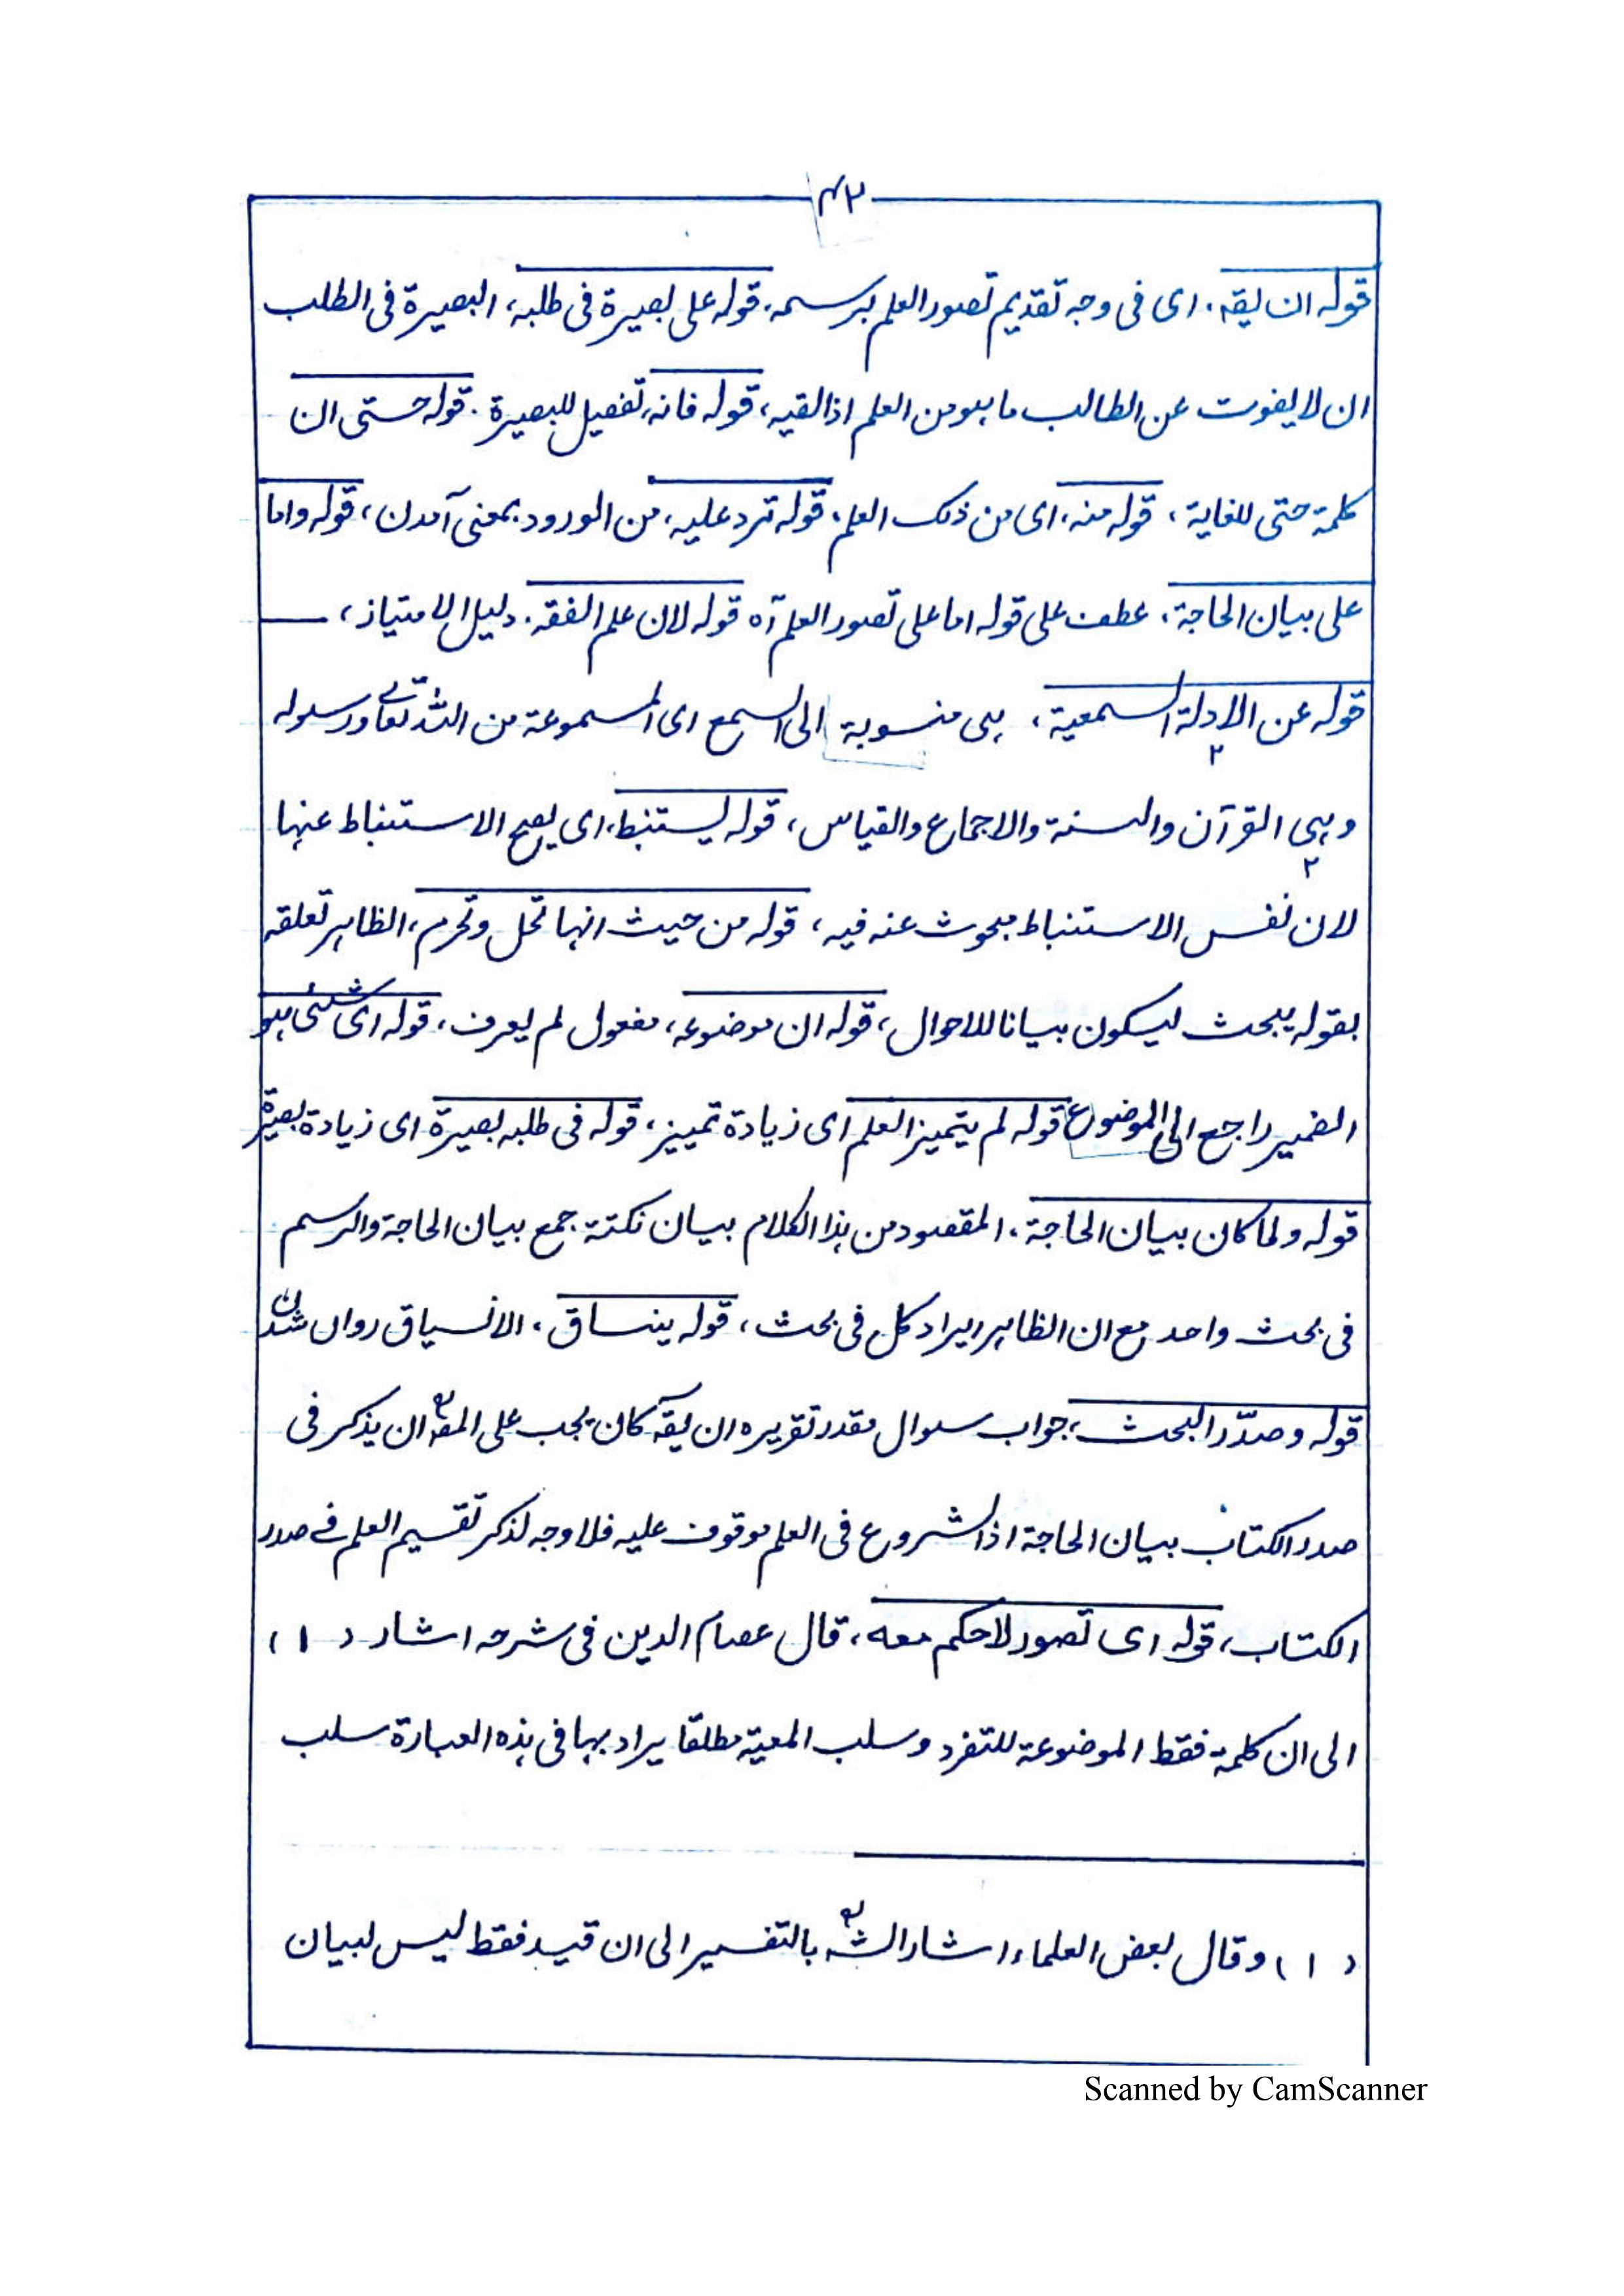 ٤٢
قوله ان يقہ. ای فی وجہ تقدیم تصور العلم برسمہ. قوله علی بصیرة فی طلبہ، البصیرة فی الطلب
ان لا یفوت عن الطالب ما ہو من العلم اذا لقیہ، قوله فانہ، تفصیل للبصیرة. قوله حتی ان
کلمة حتی للغایة، قوله منہ، ای من ذلک العلم. قوله ترد علیہ، من الورود بمعنی آمدن، قوله واما
علی بیان الحاجة. عطف علی قوله اما علی تصور العلم آہ قوله لان علم الفقہ. دلیل الامتیاز،
قوله عن الادلة السمعیة، ہی منسوبة الی السمع ای المسموعة من اللہ تعالی ورسولہ
۲
وہی القرآن والسنة والاجماع والقیاس، قوله یستنبط، ای یصح الاستنباط عنہا
۲
لان نفس الاستنباط مبحوث عنہ فیہ، قوله من حیث انہا تحل وتحرم، الظاہر تعلقہ
بقولہ یبحث لیکون بیانا للاحوال، قوله ان موضوعہ، مفعول لم یعرف، قوله ای شئی ہو
الضمیر راجع الی الموضوع قوله لم یتمیز العلم ای زیادة تمییز، قوله فی طلبہ بصیرة ای زیادة بصیرة
قوله ولما کان بیان الحاجة، المقصود من ہذا الکلام بیان نکتة جمع بیان الحاجة والرسم
فی بحث واحد مع ان الظاہر ایراد کل فی بحث، قوله ینساق، الانسیاق رواں شدن
قوله وصدّر البحث، جواب سوال مقدر تقریرہ ان یقہ کان یجب علی المصہ ان یذکر فی
صدر الکتاب بیان الحاجة اذ الشروع فی العلم موقوف علیہ فلا وجہ لذکر تقسیم العلم فی صدر
الکتاب، قوله ای تصور لا حکم معہ، قال عصام الدین فی شرحہ اشار (۱)
الی ان کلمة فقط الموضوعة للتفرد وسلب المعیة مطلقا یراد بہا فی ہذہ العبارة سلب
(۱) وقال بعض العلماء اشار الشہ بالتفسیر الی ان قید فقط لیس لبیان
Scanned by CamScanner